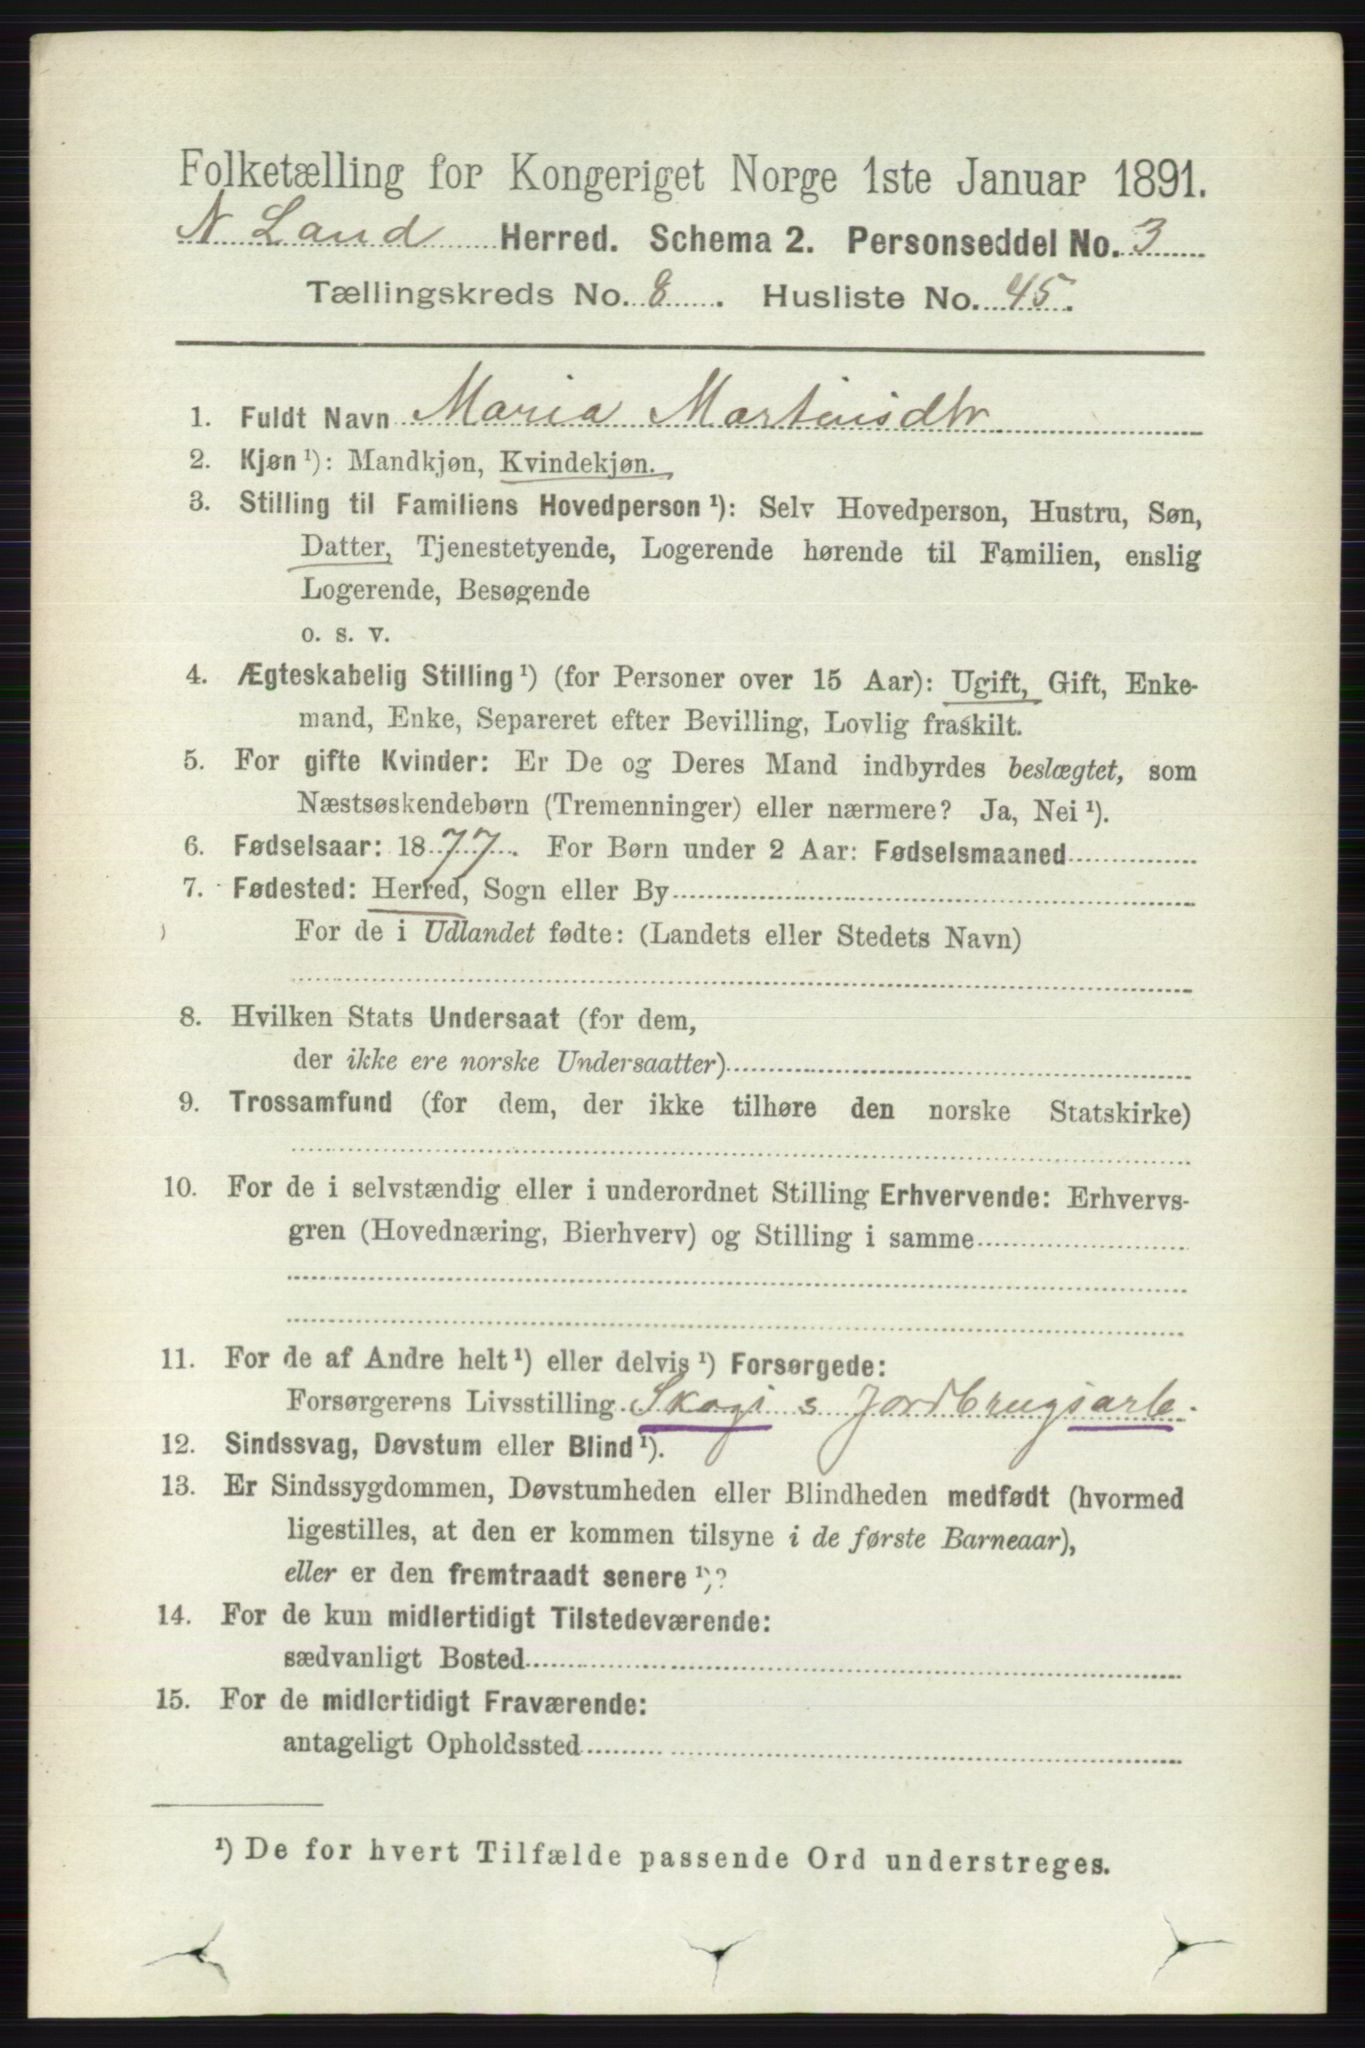 Folketælling for Kongeriget Norge 1ste Januar 1891.
N Land Herred. Schema 2. Personseddel No. 3
Tællingskreds No. 8 . Husliste No. 45.
1. Fuldt Navn Maria Martinsdtr
2. Kjøn ¹): Mandkjøn, Kvindekjøn.
3. Stilling til Familiens Hovedperson ¹): Selv Hovedperson, Hustru, Søn,
Datter, Tjenestetyende, Logerende hørende til Familien, enslig
Logerende, Besøgende
o. s. v.
4. Ægteskabelig Stilling ¹) (for Personer over 15 Aar): Ugift, Gift, Enke-
mand, Enke, Separeret efter Bevilling, Lovlig fraskilt.
5. For gifte Kvinder: Er De og Deres Mand indbyrdes beslægtet, som
Næstsøskendebørn (Tremenninger) eller nærmere? Ja, Nei ¹).
6. Fødselsaar: 1877. For Børn under 2 Aar: Fødselsmaaned
7. Fødested: Herred, Sogn eller By
For de i Udlandet fødte: (Landets eller Stedets Navn)
8. Hvilken Stats Undersaat (for dem,
der ikke ere norske Undersaatter)
9. Trossamfund (for dem, der ikke tilhøre den norske Statskirke)
10. For de i selvstændig eller i underordnet Stilling Erhvervende: Erhvervs-
gren (Hovednæring, Bierhverv) og Stilling i samme
11. For de af Andre helt ¹) eller delvis ¹) Forsørgede:
Forsørgerens Livsstilling Skogs Jordbrugsarb.
12. Sindssvag, Døvstum eller Blind ¹).
13. Er Sindssygdommen, Døvstumheden eller Blindheden medfødt (hvormed
ligestilles, at den er kommen tilsyne i de første Barneaar),
eller er den fremtraadt senere ¹)?
14. For de kun midlertidigt Tilstedeværende:
sædvanligt Bosted
15. For de midlertidigt Fraværende:
antageligt Opholdssted
¹) De for hvert Tilfælde passende Ord understreges.